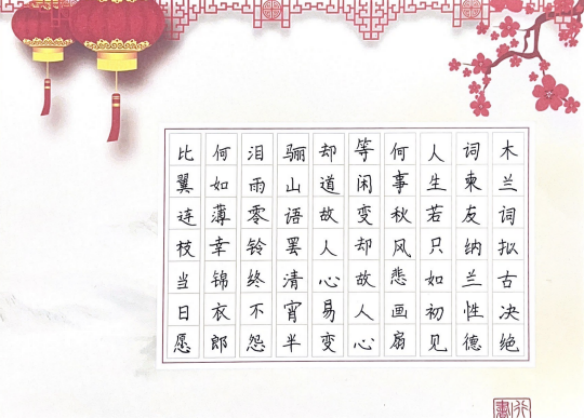 木兰词拟古决绝
词柬友纳兰性德
人生若只如初见
何事秋风悲画扇
等闲变却故人心
却道故人心易变
骊山语罢清宵半
泪雨零铃终不怨
何如薄幸锦衣郎
比翼连枝当日愿